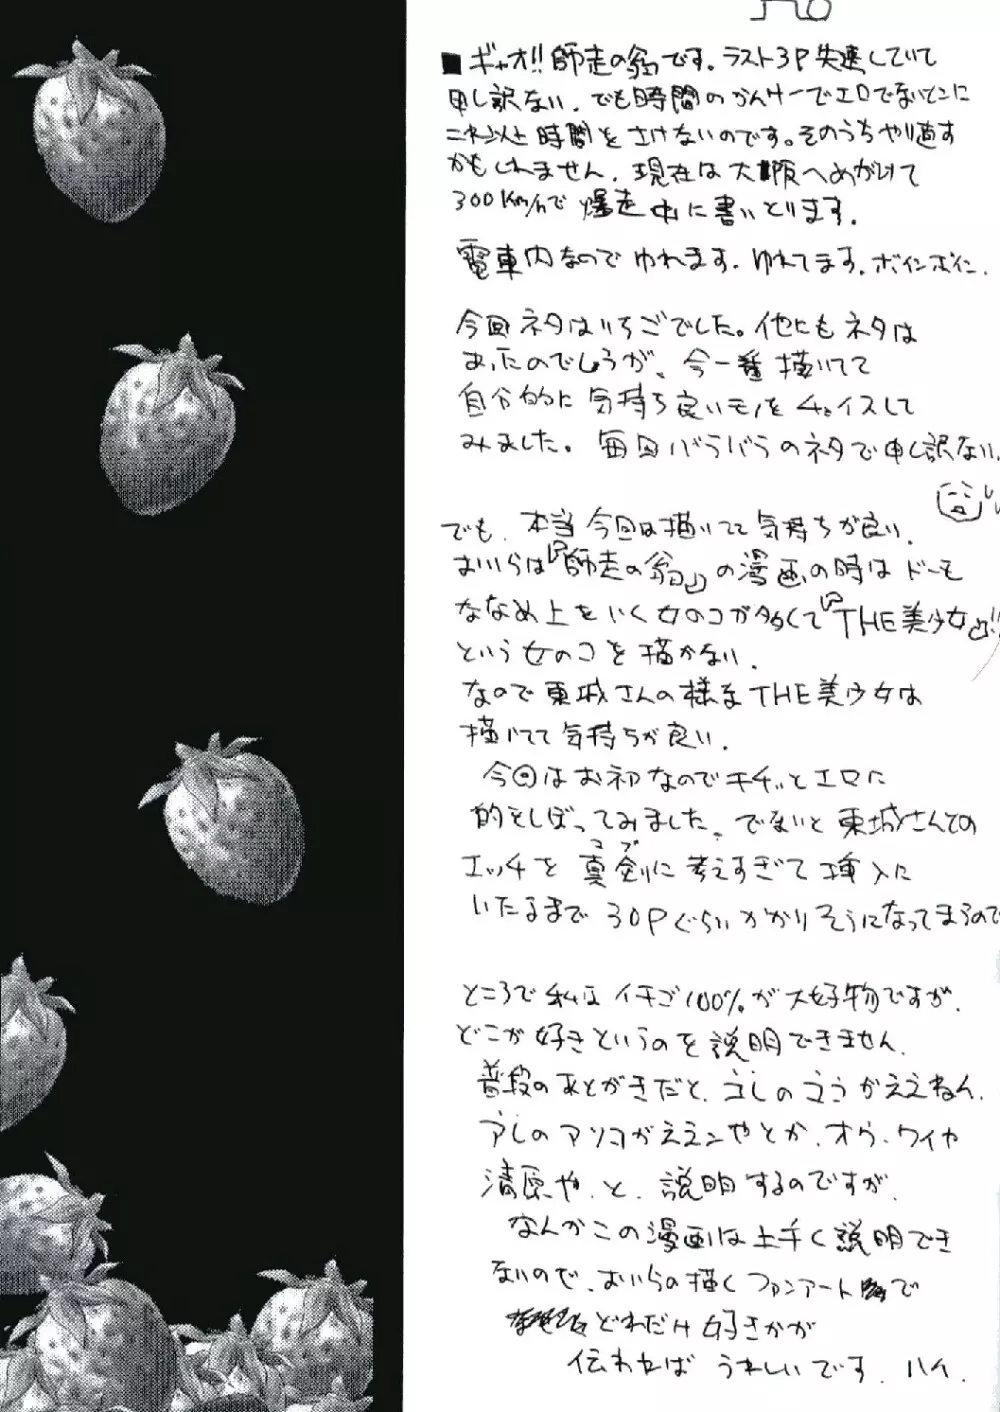 ■ギャオ!!師走の翁です。ラスト3P失速していて
申し訳ない。でも時間のかんけーでエロでないトコに
これ以上時間をさけないのです。そのうちやり直す
かもしれません。現在は大阪へめがけて
300Km/hで爆走中に書いとります。
電車内なのでゆれます。ゆれてます。ボインボイン。
今回ネタはいちごでした。他にもネタは
あったのでしょうが、今一番描いてて
自分的に気持ち良いモノをチョイスして
みました。毎回バラバラのネタで申し訳ない。
でも、本当今回は描いてて気持ちが良い。
おいらは『師走の翁』の漫画の時はドーモ
ななめ上をいく女のコが多くて『THE美少女』!!
という女のコを描かない。
なので東城さんの様なTHE美少女は
描いてて気持ちが良い。
今回はお初なのでキチッとエロに
的をしぼってみました。でないと東城さんでの
エッチを真剣に考えすぎて挿入に
マヂ
いたるまで30Pぐらいかかりそうになってまうので
ところで私はイチゴ100%が大好物ですが、
どこが好きというのを説明できません。
普段のあとがきだと、コレのココがええねん。
アレのアソコがええンやとか、オウ、ワイや
清原や、と、説明するのですが、
なんかこの漫画は上手く説明でき
ないので、おいらの描くファンアートで
どれだけ好きかが
伝われば うれしいです。ハイ。